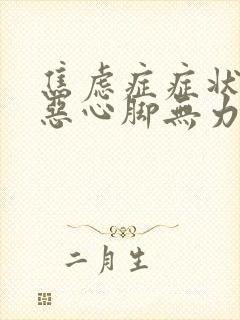 焦虑症症状
惡心脚無力
二月生